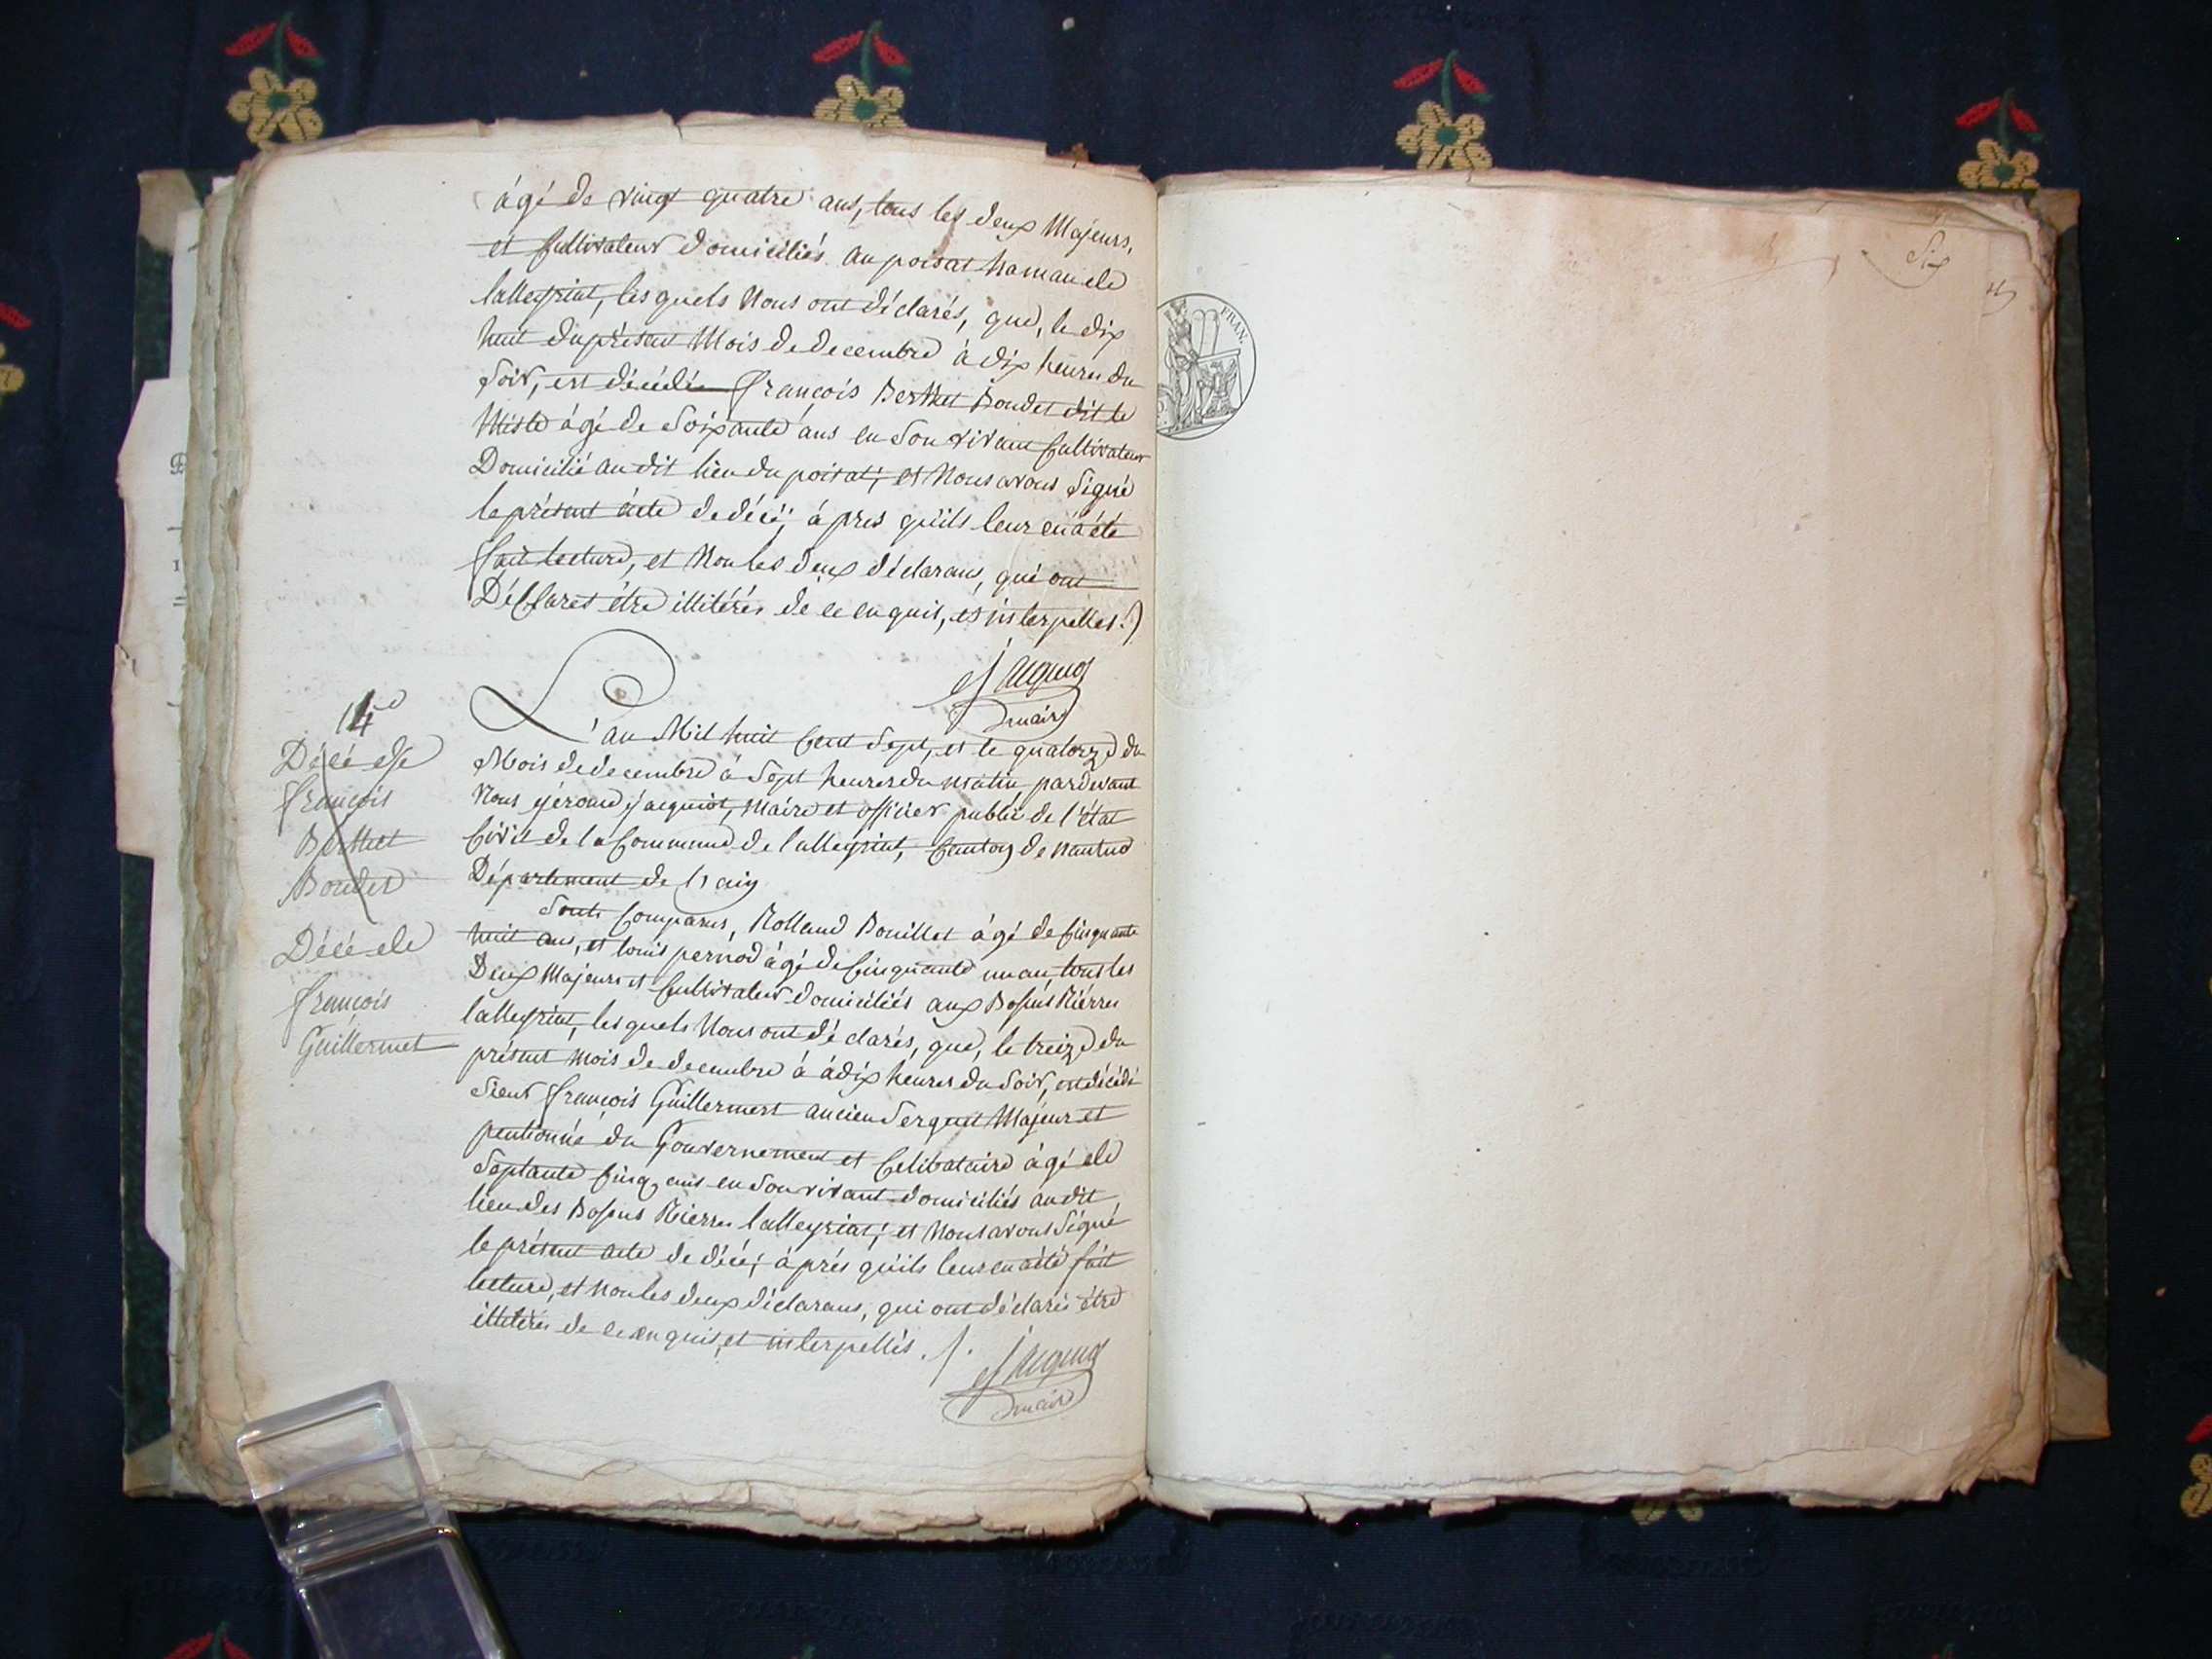 âgé de vingt quatre ans, tous les deux Majeurs,
et Cultivateur domiciliés au poisat hamau de
lalleyriat, lesquels Nous ont déclarés, que, le dix
huit du présent Mois de decembre à dix heures du
Soir, est décédé françois Berthet Bondet dit le
Miste âgé de Soixante ans en Son vivant Cultivateur
Domicilié au dit lieu du poisat; et Nous avons Signé
le présent acte de décé; âpres qu'ils leur en a été
fait lecture, et Non les deux déclarans, qui ont
Déclarés être illitérés de ce enquis, et interpellés.
Jacquiot
maire
14e
Décé de
françois
Berthet
Bondet
L'an Mil huit Cent Sept, et le quatorze du
Mois de decembre à Sept heures du matin pardevant
Nous jérome jacquiot, Maire et officier public de l'état
Civil de la Commune de lalleyriat, Canton de nantua
Département de l'ain
Sont Comparus, Rolland Bouillet âgé de Cinquante
huit ans, et louis pernod âgé de Cinquante un an, tous les
Deux Majeurs et Cultivateur domiciliés aux
lalleyriat, lesquels Nous ont déclarés, que, le treize du
présent mois de decembre à à dix heures du Soir, est décédé
Sieur françois Guillermet ancien Sergent Majeur et
pentionné du Gouvernement et Celibataire âgé de
Septante Cinq ans en Son vivant domiciliés au dit
lieu des lalleyriat; et Nous avons Signé
le présent acte de décé; âprés qu'ils leur en a été fait
lecture, et Non les deux déclarans, qui ont déclarés être
illitérés de ce enquis, et interpellés.
Jacquiot
maire
Décé de
françois
Guillermet
Six
FRAN.